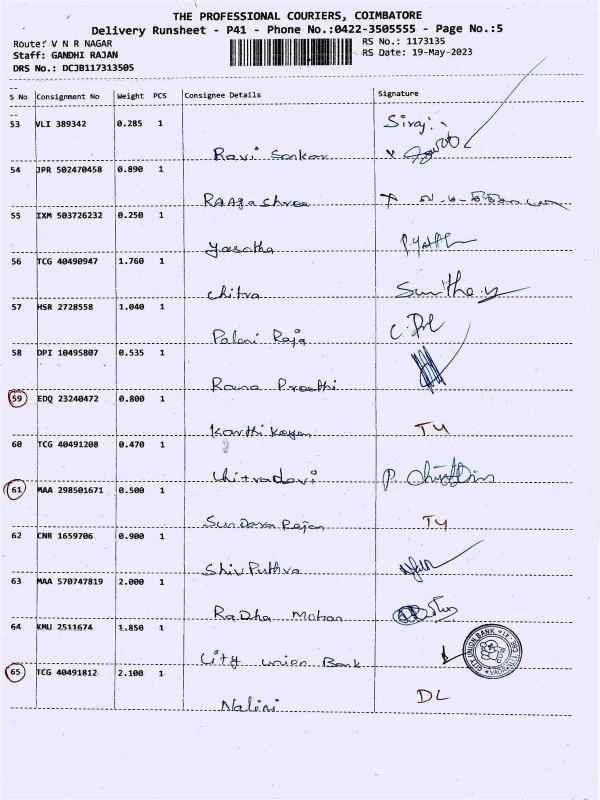 THE PROFESSIONAL COURIERS, COIMBATORE
Delivery Runsheet - P41 - Phone No.:0422-3505555 - Page No.:5
Route: V N R NAGAR RS No.: 1173135
Staff: GANDHI RAJAN RS Date: 19-May-2023
DRS No.: DCJB117313505
S No Consignment No Weight PCS Consignee Details Signature
53 VLI 389342 0.285 1 Siraj
Ravi Sankar
54 JPR 502470458 0.890 1
RAAgashree
55 IXM 503726232 0.250 1
Yasotha
56 TCG 40490947 1.760 1
Chitra
57 HSR 2728558 1.040 1
Palani Raja
58 DPI 10495807 0.535 1
Rama Preethi
59 EDQ 23240472 0.800 1
Karthikeyan TY
60 TCG 40491208 0.470 1
Chitradevi P.
61 MAA 298501671 0.500 1
Sundara Rajan TY
62 CNR 1659706 0.900 1
Shiv Puthra
63 MAA 570747819 2.000 1
Radha Mohan
64 KMU 2511674 1.850 1
City union Bank CITY UNION BANK
65 TCG 40491812 2.100 1
Nalini DL